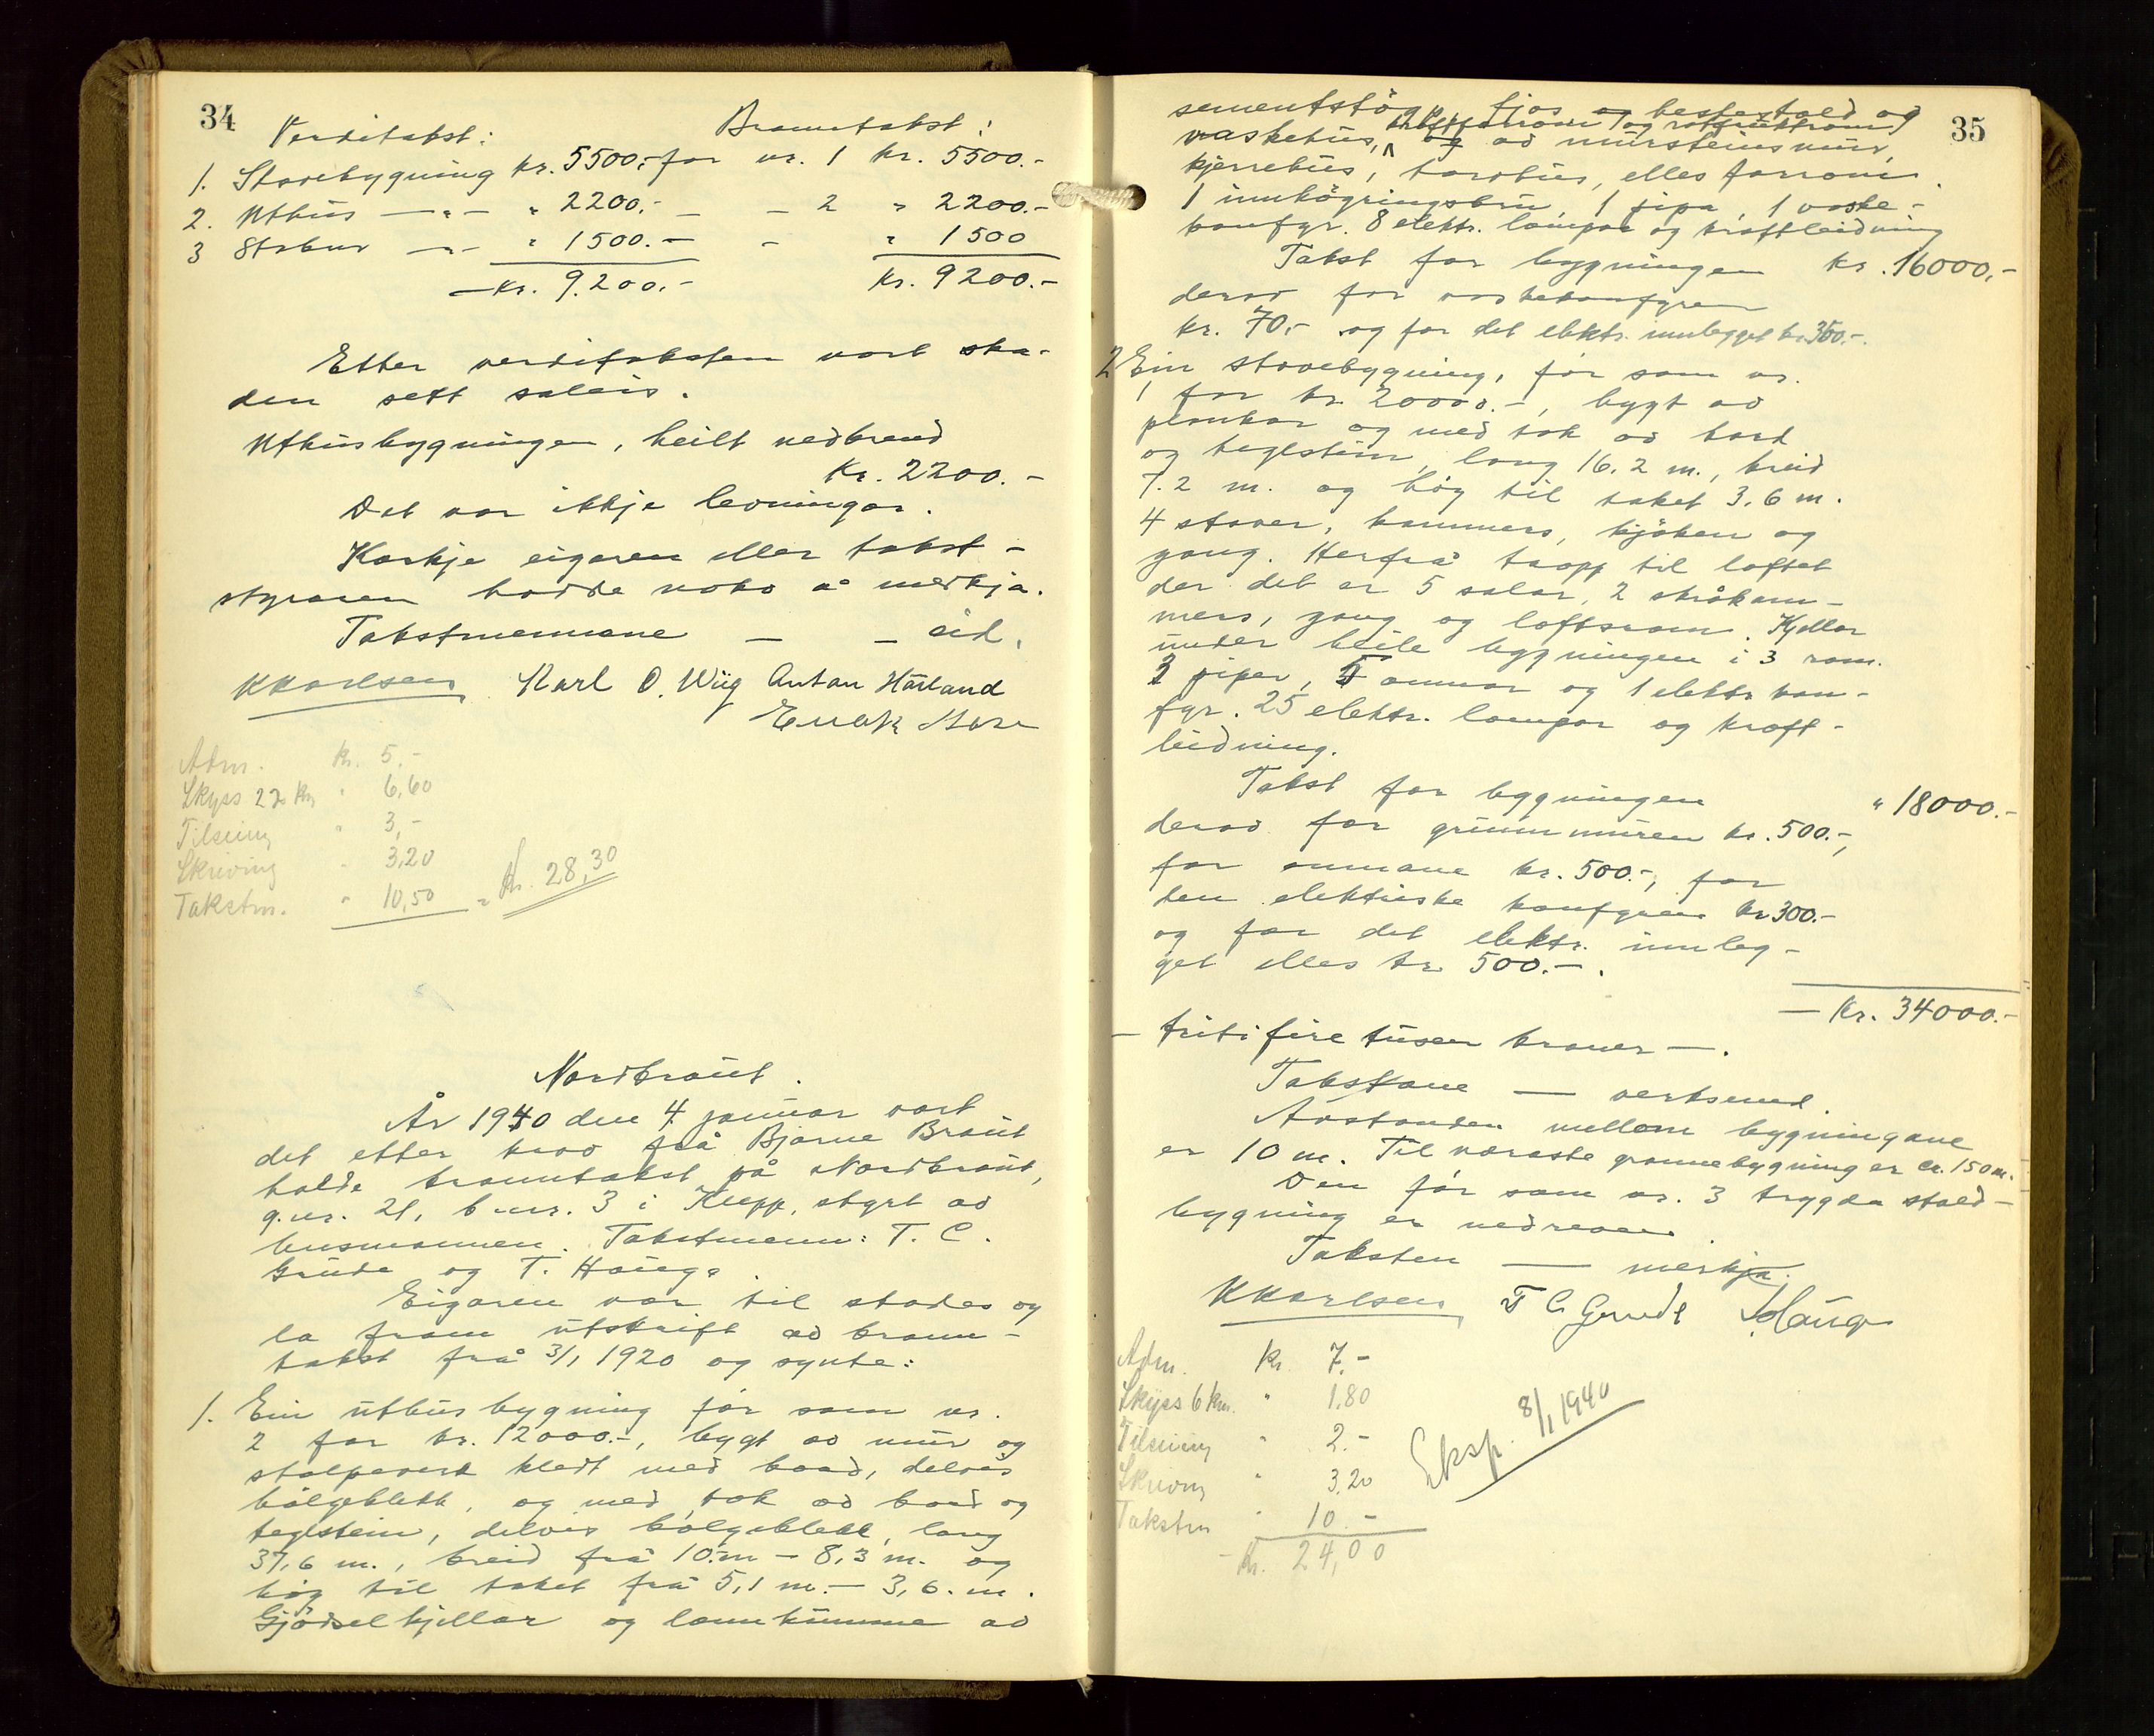 34
Verditakst: Branntakst:
1. Stovebygning kr. 5500,- for nr. 1 kr. 5500.-
2. Uthus — " — " 2200,- — - 2 " 2200.-
3 Stabur — " — " 1500.- - " 1500
— kr. 9.200,- kr. 9200.-
Etter verditaksten vart ska-
den sett saleis.
Uthusbygningen, heilt nedbrend
kr. 2200.-
Det var ikkje levningar.
Korkje eigaren eller takst-
styraren hadde noko å merkja.
Takstmennene — — eid.
KKarlsen Karl O. Wiig Anton Håland
Adm. kr. 5.-
Skyss 22 km " 6,60
Tilseiing " 3,-
Skriving " 3,20
Takstm. " 10,50 = kr. 28,30
Nordbraut.
År 1940 den 4. januar vart
det etter krav frå Bjarne Braut
halde branntakst på Nordbraut,
g.nr. 21, b.nr. 3 i Klepp, styrt av
lensmannen. Takstmenn: T. C.
Grude og T. Hauge.
Eigaren var til stades og
la fram utskrift av brann-
takst frå 3/1 1920 og synte:
1. Ein uthusbygning før som nr.
2 for kr. 12000.-, bygt av mur og
stolpeverk kledt med bord, delvis
bølgeblekk, og med tak av bord og
teglstein, delvis bølgeblekk, lang
37,6 m., breid frå 10.m - 8,3 m. og
høg til taket frå 5,1 m. - 3,6. m.
Gjødselkjellar og lannkumme av
35
sementstøyp, fjos og hestestald og
vaskehus, og av mursteinsmur,
kjerrehus, torvhus, elles forrom.
1 innkøyringsbru, 1 pipa, 1 vaske-
panfyr. 8 elektr. lampor og kraftleidning
Takst for bygningen kr. 16000,-
derav for vaskepanfyren
kr. 70,- og for det elektr. innlegget kr. 350.-.
2 Ein stovebygning, før som nr.
1 for kr. 20000.-, bygt av
plankar og med tak av bord
og teglstein, lang 16.2 m., breid
7.2 m. og høg til taket 3,6 m.
4 stover, kammers, kjøken og
gang. Herfrå trapp til loftet
der det er 5 salar, 2 skråkam-
mers, gang og loftsrom. Kjellar
under heile bygningen i 3 rom.
2 piper, 5 omnar og 1 elektr kom-
fyr. 25 elektr. lampor og kraft-
leidning.
Takst for bygningen " 18000.-
derav for grunnmuren kr. 500.-,
for omnane kr. 500.-, for
den elektriske komfyren kr 300.-
og for det elektr. innleg-
get elles kr 500.-.
— Kr. 34000.-
— tritifire tusen kroner —.
Takstane — verksemd.
Avstanden mellom bygningane
er 10 m. Til næraste grannebygning er ca. 150 m.
Den før som nr. 3 trygda stald-
bygning er nedreven.
Taksten — merkja.
KKarlsen T C Grude T Hauge
Adm. kr 7.-
Skyss 6 km. " 1.80
Tilseiing " 2.-
Skriving " 3.20
Takstm " 10.-
kr. 24,00
Eksp. 8/1 1940